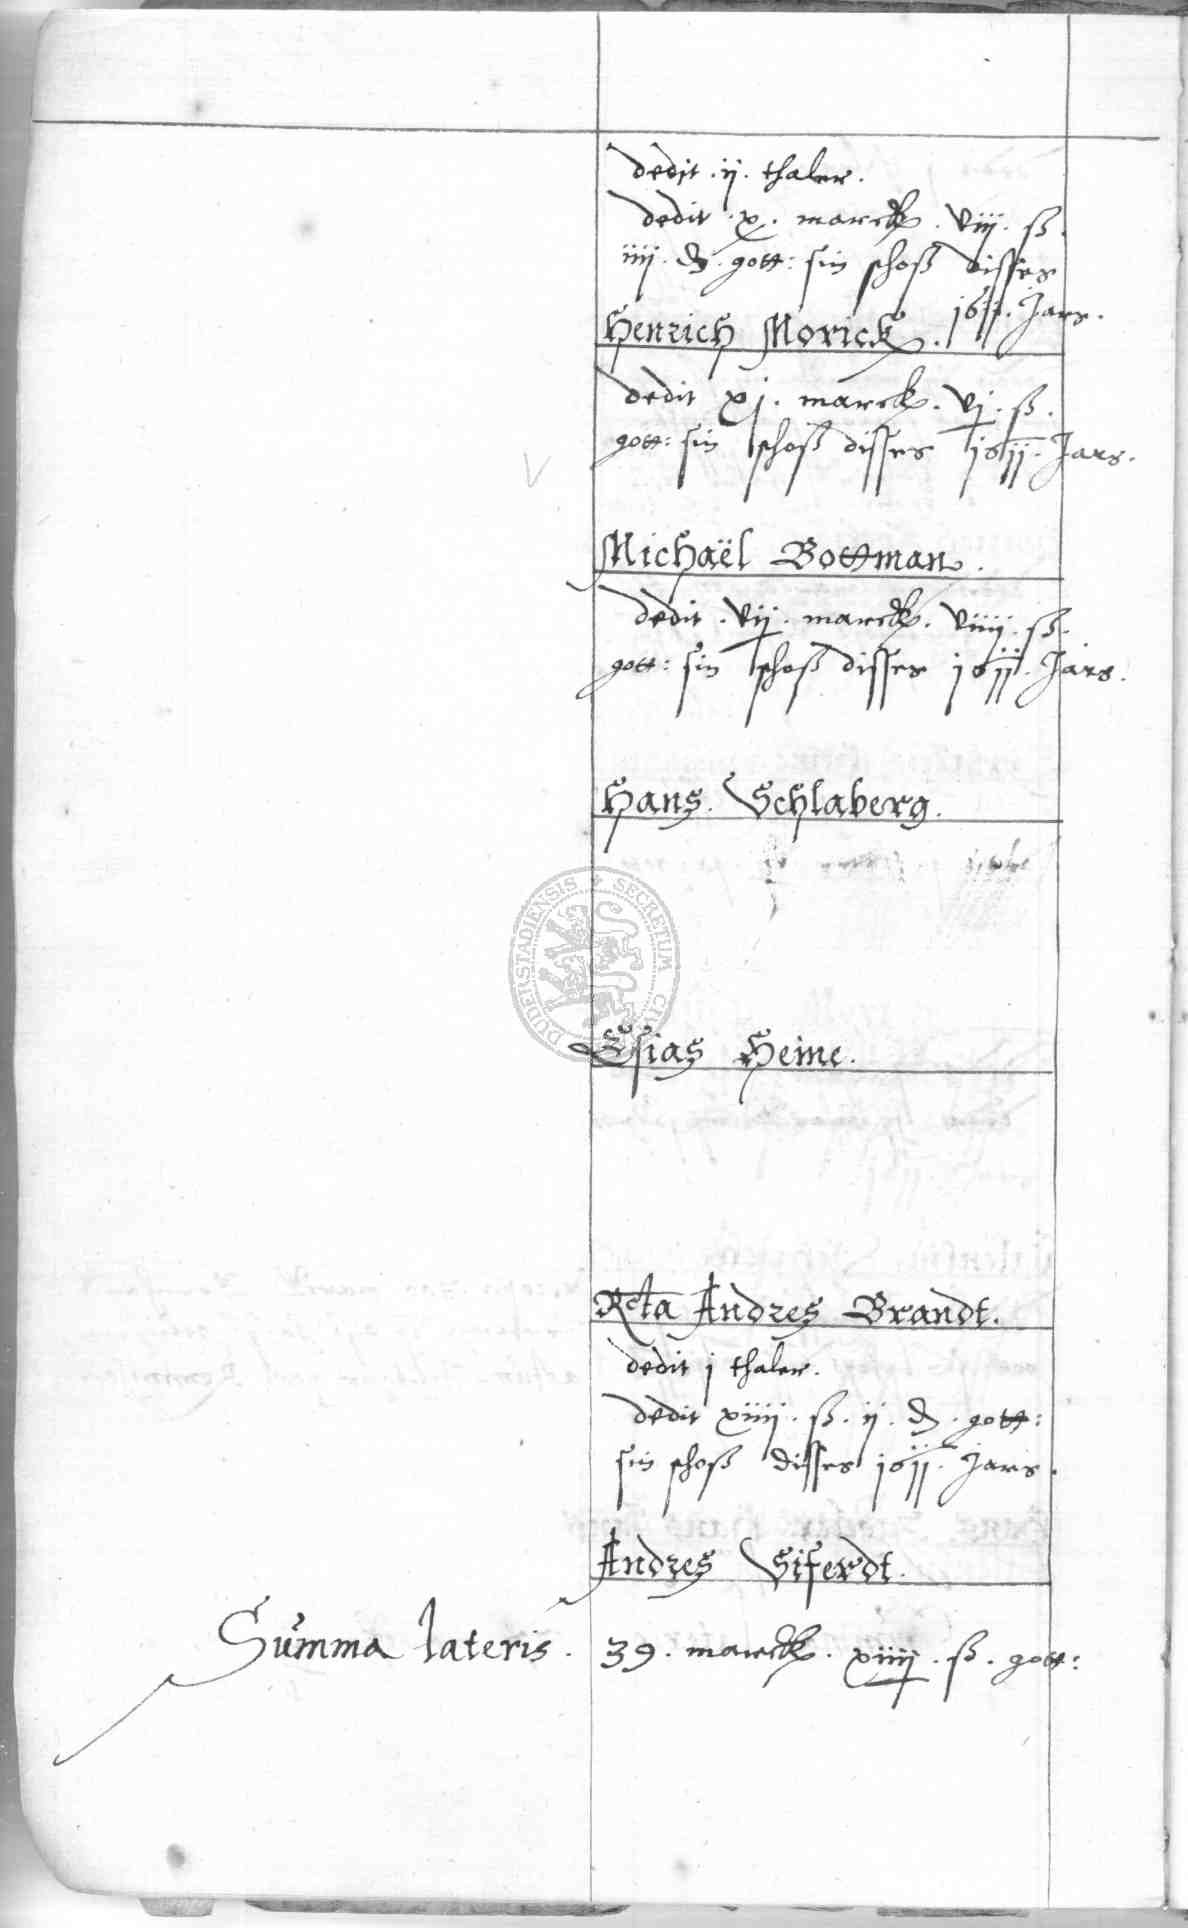 dedit . ij . thaler .
dedit . x . marck . viij . ß .
iiij . ₰ . gott : sin schoß disses
1611 . Jars .
Henrich Morick .
dedit xj . marck . vj . ß .
gott : sin schoß disses 1611 . Jars .
Michaël Bottman .
dedit . vij . marck . viiij . ß .
gott : sin schoß disses 1611 . Jars .
Hans . Schlaberg .
DUDERSTADIENSIS SECRETUM
Esias Heine .
Rcta Andres Brandt .
dedit j thaler .
dedit xiiij . ß . ij . ₰ . gott :
sin schoß disses 1611 . Jaris .
Andres Siferdt .
Summa lateris . 39 . marck . xiiij . ß . gott :